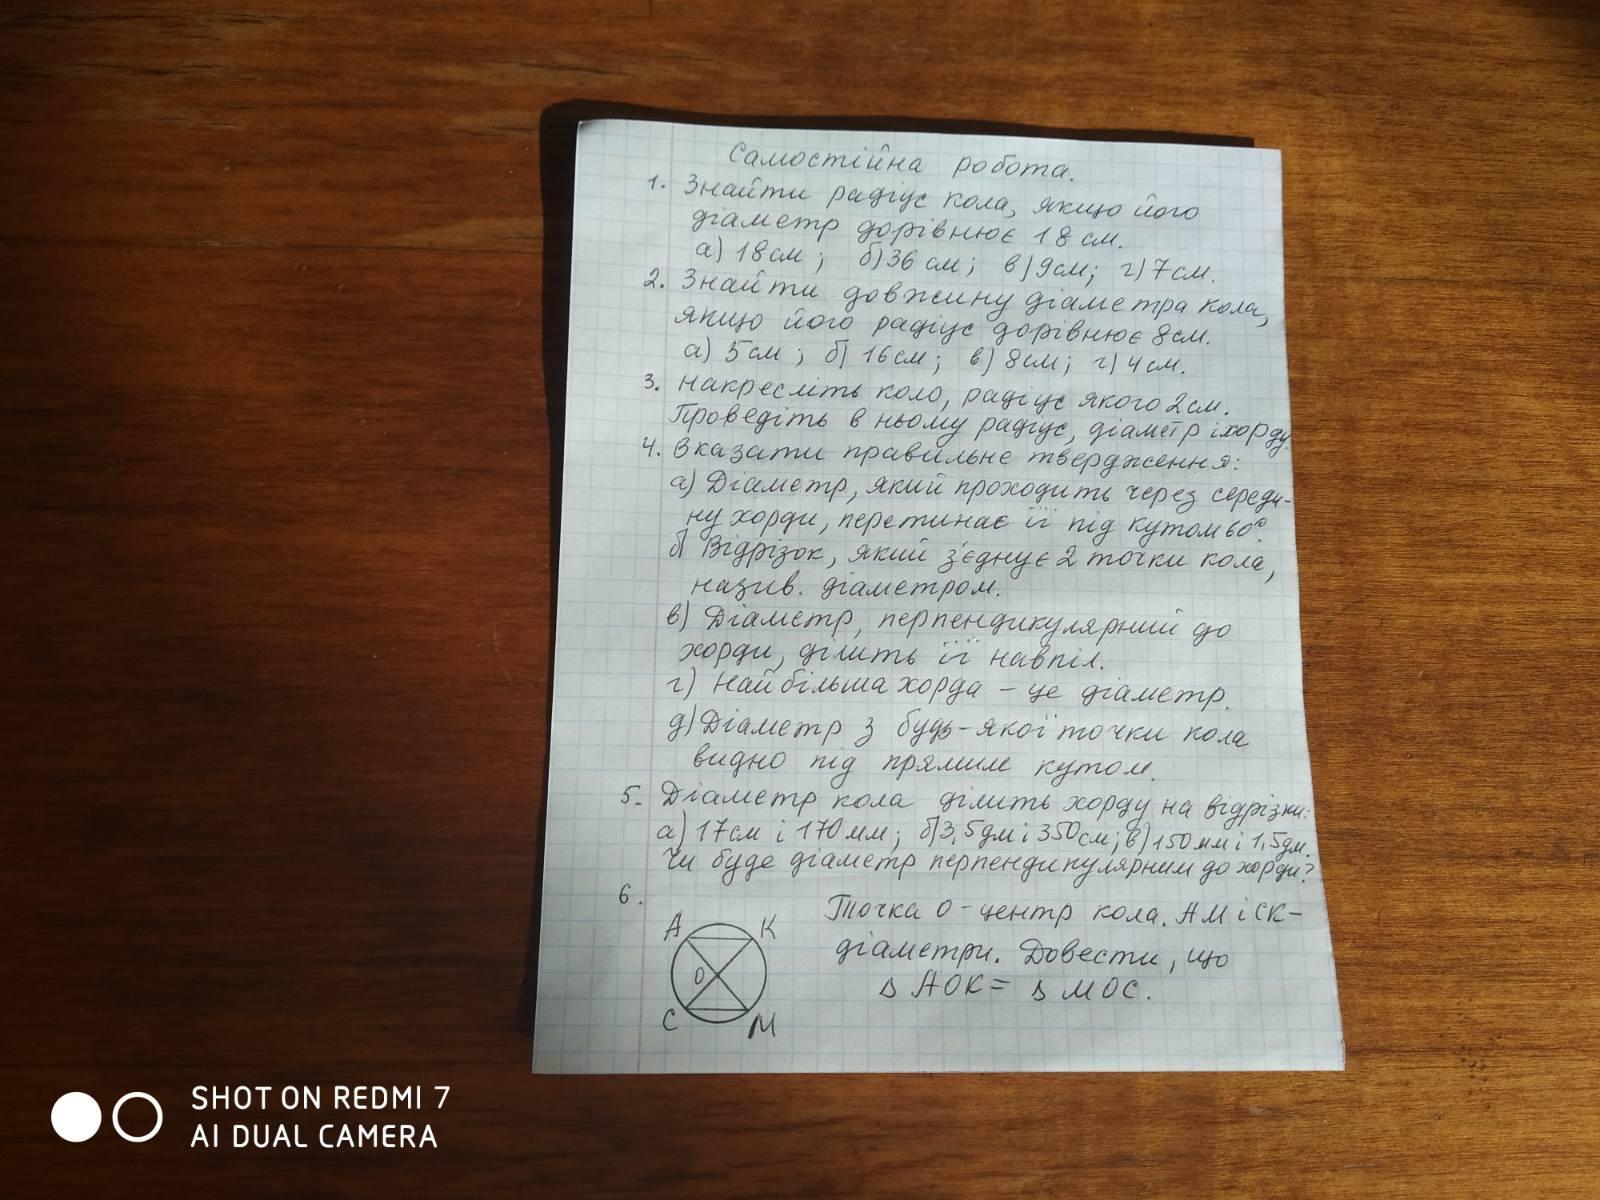 Самостійна робота.
1. Знайти радіус кола, якщо його
діаметр дорівнює 18 см.
а) 18см; б) 36 см; в) 9см; г) 7 см.
2. Знайти довжину діаметра кола,
якщо його радіус дорівнює 8см.
а) 5см; б) 16см; в) 8см; г) 4см.
3. Накресліть коло, радіус якого 2см.
Проведіть в ньому радіус, діаметр і хорду.
4. Вказати правильне твердження:
а) Діаметр, який проходить через середи-
ну хорди, перетинає її під кутом 60°.
б) Відрізок, який з'єднує 2 точки кола,
назив. діаметром.
в) Діаметр, перпендикулярний до
хорди, ділить її навпіл.
г) Найбільша хорда - це діаметр.
д) Діаметр з будь-якої точки кола
видно під прямим кутом.
5. Діаметр кола ділить хорду на відрізки:
а) 17см і 170мм; б) 3,5дм і 350см; в) 150мм і 1,5дм.
Чи буде діаметр перпендикулярним до хорди?
6.
Точка О - центр кола. АМ і СК-
діаметри. Довести, що
Δ АОК = Δ МОС.
А К
О
С М
SHOT ON REDMI 7
AI DUAL CAMERA